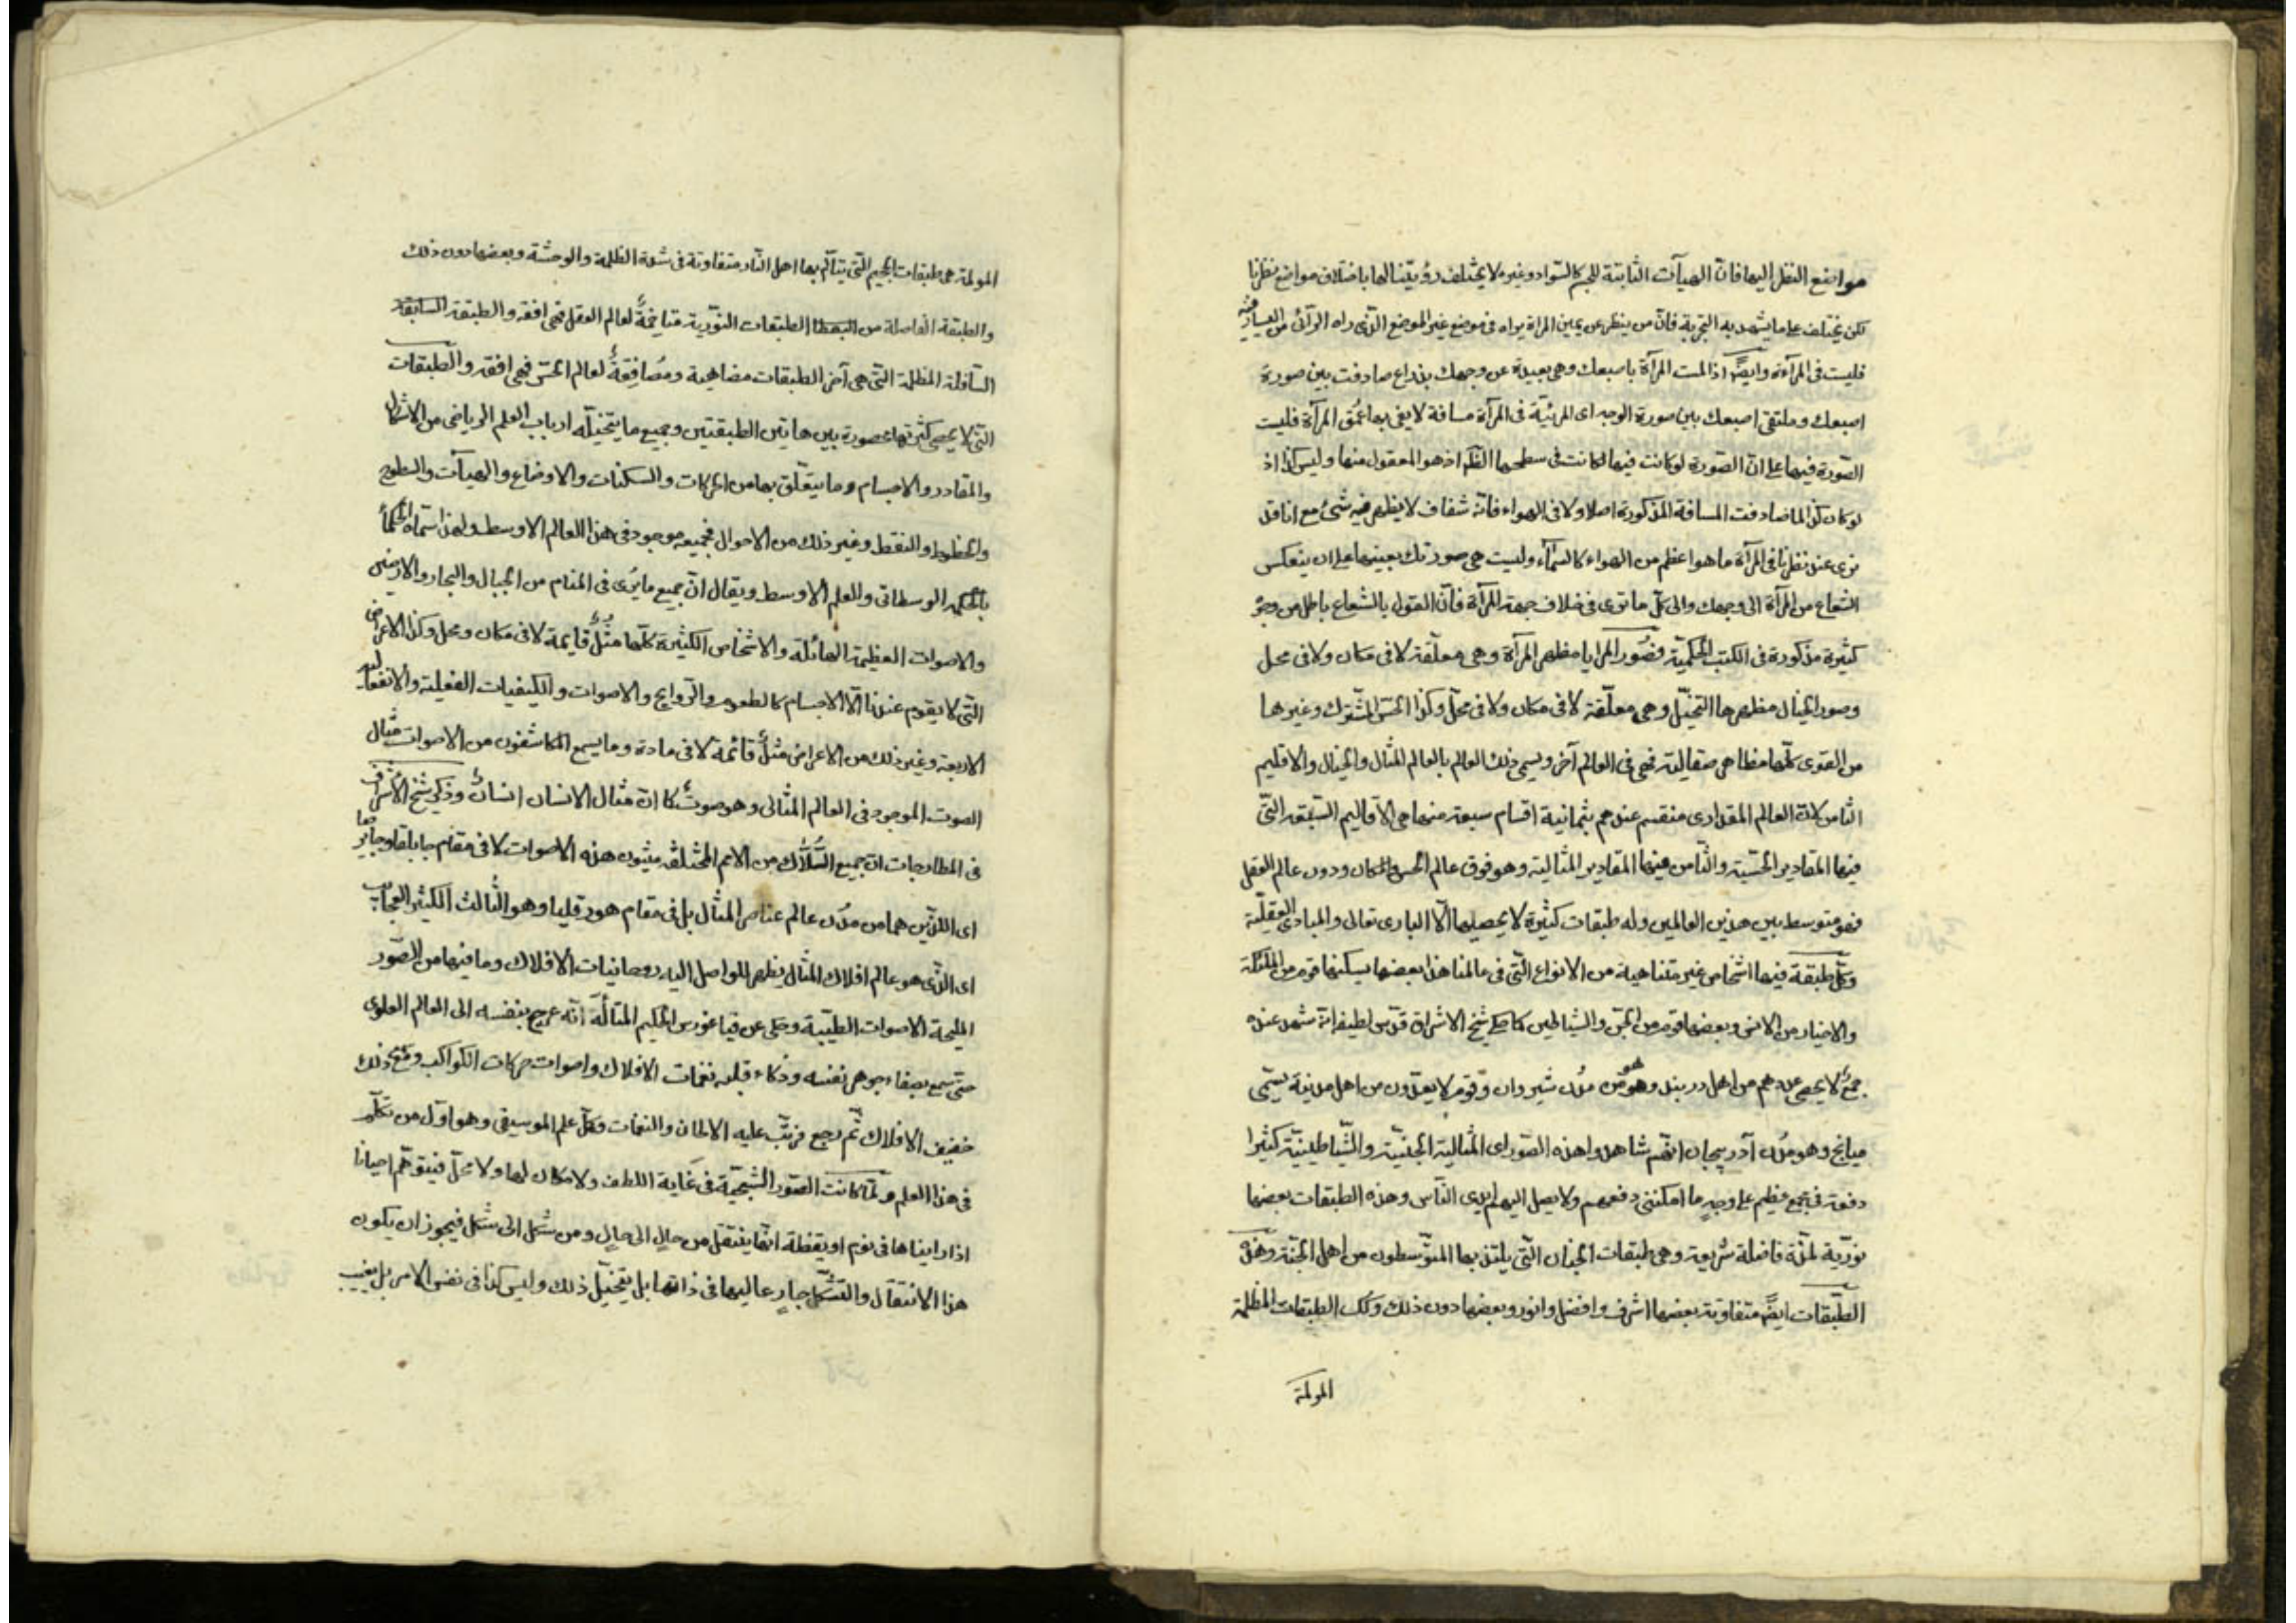 مواضع النظر اليها فانّ الهيآت الثابتة للجسم كالسّواد وغيره لا يختلف رؤيتنا لها باختلاف مواضع نظرنا
لكن يختلف على ما يشهد به التجربة فانّ من ينظر عن يمين المرآة يراه فى موضع غير الموضع الّذى راه الرآئى من اليسار فيه
فليست فى المرآة وايضًا اذا لمست المرآة باصبعك وهى بعيدة عن وجهك بذراع صادفت بين صورة
اصبعك وملتقى اصبعك بين صورة الوجه اى المرئيّة فى المرآة مسافة لا يفى بها عُمق المرآة فليست
الصّورة فيها على انّ الصّورة لو كانت فيها لكانت فى سطحها الظّاهر اذ هو المعقول منها وليس كذا اذ
لو كان كذا لما صادفت المسافة المذكورة اصلا ولا فى الهواء فانّه شفاف لا يظهر فيه شئ مع انا قد
نرى عند نظرنا فى المرآة ما هو اعظم من الهواء كالسّماء وليست هى صورتك بعينها على ان ينعكس
الشعاع من المرآة الى وجهك والى كلّ ما ترى فى خلاف جهة المرآة فانّ القول بالشعاع باطل من وجوه
كثيرة مذكورة فى الكتب الحكميّة فصُور المرايا مظهرها المرآة وهى معلّقة لا فى مكان ولا فى محل
وصور الخيال مظهرها التخيّل وهى معلّقة لا فى مكان ولا فى محلّ وكذا الحسّ المشترك وغيرها
من القوى كلّها مظاهر صقالية فهى فى العالم آخر ويسمى ذلك العالم بالعالم المثال والخيال والاقليم
الثامن لانّ العالم المقدارى منقسم عندهم بثمانية اقسام سبعة منها هى الاقاليم السّبعة التّى
فيها المقادير الحسّية والثّامن فيها المقادير المثالية وهو فوق عالم الحس والمكان ودون عالم العقل
فهو متوسط بين هذين العالمين وله طبقات كثيرة لا يحصيها الّا البارى تعالى والمبادى العقليّة
وكلّ طبقة فيها اشخاص غير متناهية من الانواع الّتى فى عالمنا هذا بعضها يسكنها قوم من الملئكة
والاخيار من الانس وبعضها قوم من الجنّ والشياطين كما حكى شيخ الاشراق قدّس لطيفه انّه شهد عنده
جمعٌ لا يحصى عددهم من اهل دربند وهو من مُدن شيروان وقوم لا يعدّون من اهل مدينة يسمّى
ميانج وهو مُدن آذربيجان انّهم شاهدوا هذه الصّور اى المثالية الجنيّة والشّياطينيّة كثيرا
دفعة فى مجمع عظيم على وجهٍ ما امكننى دفعهم ولا يصل اليهم ايدى النّاس وهذه الطبقات بعضها
نوريّة لمذّة فاضلة شريفة وهى طبقات الجنان الّتى يلتذ بها المتوّسطون من اهل الجنّة وهذه
الطبقات ايضًا متفاوتة بعضها اشرف وافضل وانور وبعضها دون ذلك وكك الطبقات المظلمة
المولمة
المولمة هى طبقات الجحيم الّتى يتألّم بها اهل النّار متفاوتة فى شدة الظلمة والوحشة وبعضها دون ذلك
والطبقة الفاضلة من الطبقات النوّرية متاخمةٌ لعالم العقل فهى افقه والطبقة السابقة
السّافلة المظلمة التّى هى آخر الطبقات مضاهية ومُصَافِقةٌ لعالم الحسّ فهى افقه والطّبقات
الّتى لا يحصى كثرتها محصورة بين هاتين الطبقتين وجميع ما يتخيّله ارباب العلم الرياضى من الاشكال
والمقادير والاجسام وما يتعلّق بها من الحركات والسكنات والاوضاع والهيآت والسطوح
والخطوط والنقط وغير ذلك من الاحوال فجميعه موجود فى هذا العالم الاوسط ولهذا سمّاه الحكماءُ
بالحكمة الوسطانى والعلم الاوسط ويقال انّ جميع ما يُرى فى المنام من الجبال والبحار والارضين
والاصوات العظيمة الهائلة والاشخاص الكثيرة كلّها مُثُلٌ قايمة لا فى مكان ومحل وكذا الاعراض
التّى لا يقوم عندنا الّا الاجسام كالطعوم والرّوايح والاصوات والكيفيات الفعلية والانفعاليه
الاربعة وغير ذلك من الاعراض مُثُلٌ قائمة لا فى مادة وما يسمع المكاشفون من الاصوات مثال
الصوت الموجود فى العالم المثالى وهو صوتٌ كما انّ مثال الانسان انسانٌ وذكر شيخ الاشراق
فى المطارحات انّ جميع السُّلّاك من الامم المختلفة يثبتون هذه الاصوات لا فى مقام جابلقا وجابرصا
اى اللّذين هما من مدُن عالم عناصر المثال بل فى مقام هورقليا وهو الثّالث الكثير العجايب
اى الّذى هو عالم افلاك المثال يظهر للواصل اليه روحانيات الافلاك وما فيها من الصّور
المليحة الاصوات الطيّبة وحكى عن فيثاغورس الحكيم المتألّه انّه عرج بنفسه الى العالم العلوى
حتى سمع بصفاء جوهر نفسه وذكاء قلبه نغمات الافلاك واصوات حركات الكواكب وسمع ذلك
خفيف الافلاك ثمّ رجع فرتّب عليه الالحان والنغمات وكمّل علم الموسيقى وهو اوّل من تكلّم
فى هذا العلم ولمّا كانت الصّور الشبحيّة فى غاية اللطف ولا مكان لها ولا محلّ فيتوهّم احيانا
اذا رايناها فى نوم او يقظة انّها ينتقل من حالٍ الى حالٍ ومن شكل الى شكل فيجوز ان يكون
هذا الانتقال والتشكّل جارٍ عاليها فى ذاتها بل يتخيّل ذلك وليس كذا فى نفس الامر بل يغيب